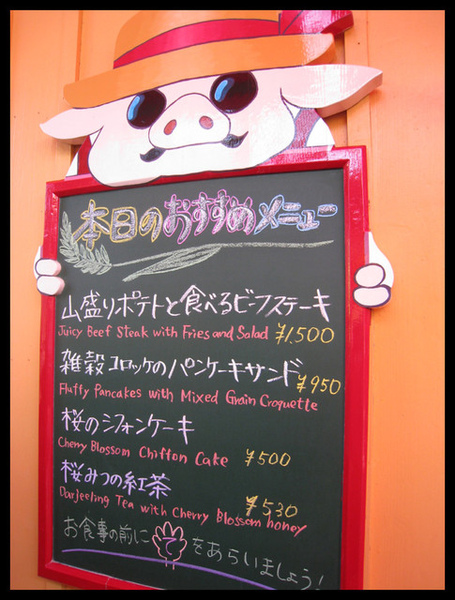 本日のおすすめメニュー
山盛りポテトと食べるビーフステーキ
Juicy Beef Steak with Fries and Salad ¥1,500
雑穀コロッケのパンケーキサンド ¥950
Fluffy Pancakes with Mixed Grain Croquette
桜のシフォンケーキ
Cherry Blossom Chiffon Cake ¥500
桜みつの紅茶
Darjeeling Tea with Cherry Blossom honey ¥530
お食事の前にてをあらいましょう!